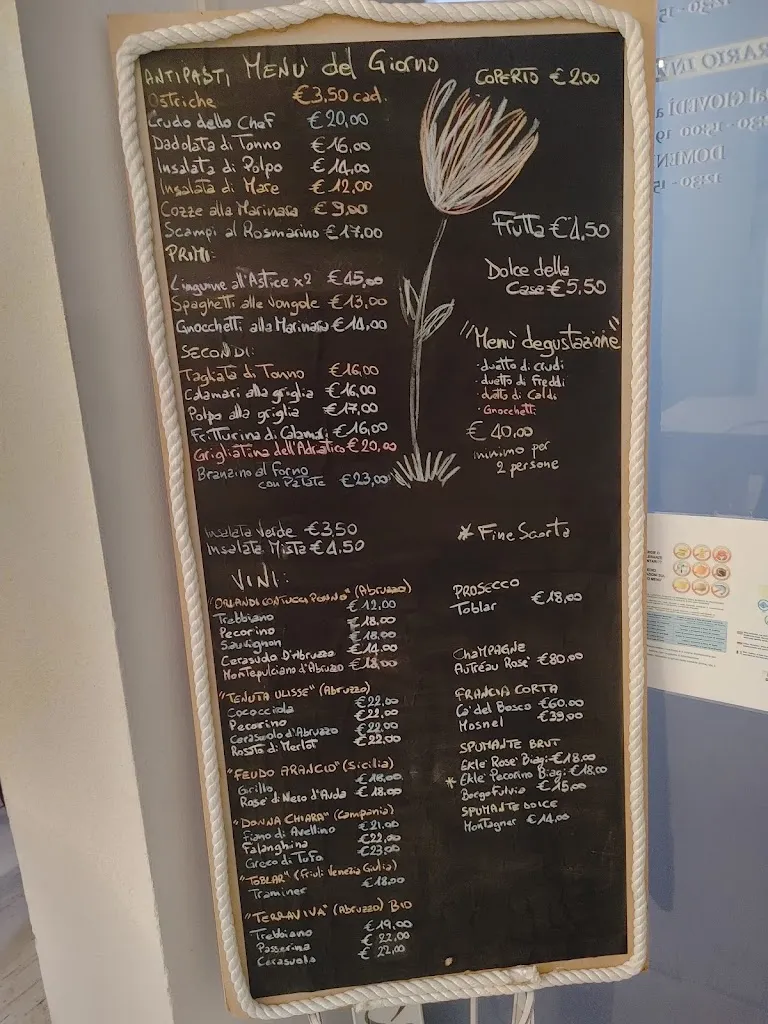 ANTIPASTI MENU' del Giorno
COPERTO €2.00
Ostriche €3,50 cad.
Crudo dello Chef €20,00
Dadolata di Tonno €16,00
Insalata di Polpo €14,00
Insalata di Mare €12,00
Cozze alla Marinara €9,00
Scampi al Rosmarino €17,00
PRIMI:
Linguine all'Astice x2 €45,00
Spaghetti alle Vongole €13,00
Gnocchetti alla Marinara €14,00
SECONDI:
Tagliata di Tonno €16,00
Calamari alla griglia €16,00
Polpo alla griglia €17,00
Fritturina di Calamari €16,00
Grigliatina dell'Adriatico €20,00
Branzino al Forno
con Patate €23,00
Insalata Verde €3,50
Insalata Mista €4,50
Frutta €4,50
Dolce della
Casa €5,50
"Menù degustazione"
· duetto di crudi
· duetto di Freddi
· duetto di Caldi
· Gnocchetti
€ 40,00
minimo per
2 persone
* Fine Scorta
VINI:
"ORLANDI CONTUCCI PONNO" (Abruzzo)
Trebbiano € 12,00
Pecorino € 18,00
Sauvignon € 18,00
Cerasuolo D'Abruzzo € 14,00
Montepulciano d'Abruzzo € 18,00
"TENUTA ULISSE" (Abruzzo)
Cococciola € 22,00
Pecorino € 22,00
Cerasuolo d'Abruzzo € 22,00
Rosato di Merlot € 22,00
"FEUDO ARANCIO" (Sicilia)
Grillo € 18,00
Rose' di Nero d'Avola € 18,00
"DONNA CHIARA" (Campania)
Fiano di Avellino € 21,00
Falanghina € 22,00
Greco di Tufo € 23,00
"TOBLAR" (Friuli Venezia Giulia)
Traminer € 18,00
"TERRAVIVA" (Abruzzo) BIO
Trebbiano € 19,00
Passerina € 22,00
Cerasuolo € 22,00
PROSECCO
Toblar €18,00
CHAMPAGNE
Autréau Rosé €80,00
FRANCIA CORTA
Ca' del Bosco €60,00
Mosnel €39,00
SPUMANTE BRUT
Eklé Rosé Biagi €18,00
* Eklé Pecorino Biagi €18,00
Borgo Fulvia €15,00
SPUMANTE DOLCE
Montagner €14,00